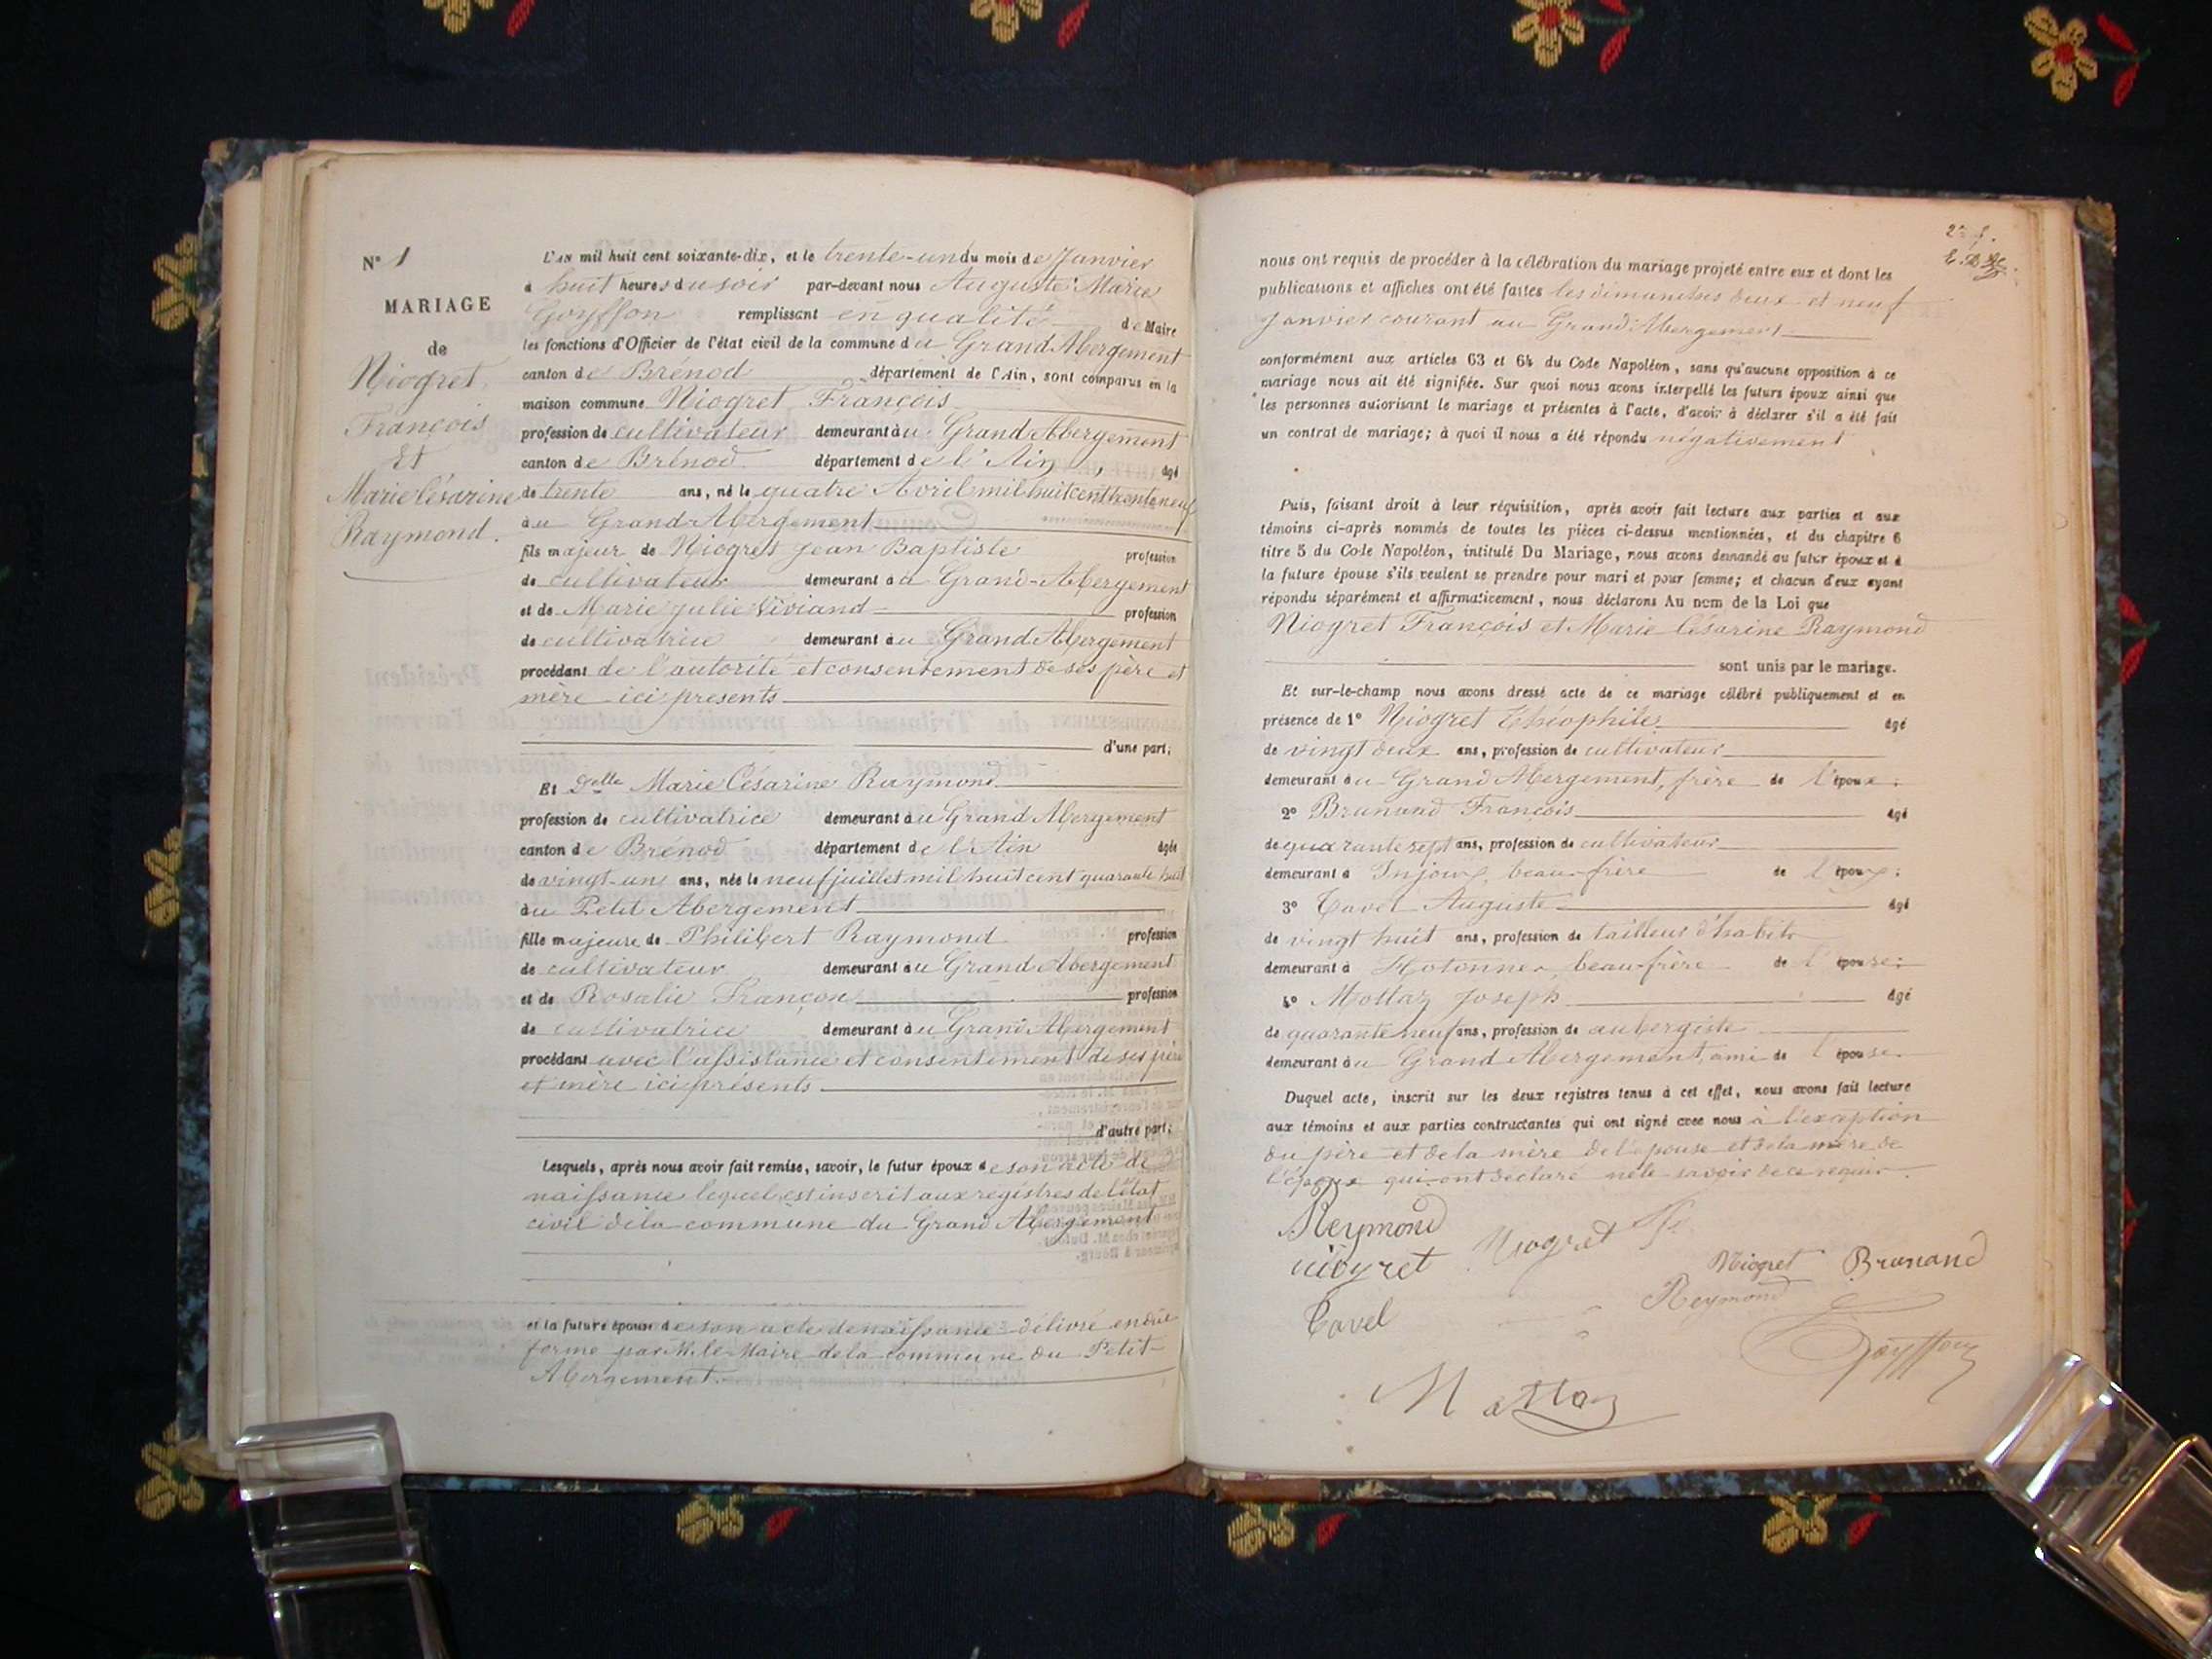 N° 1
MARIAGE
de
Niogret
François
Et
Marie Césarine
Raymond.
L'an mil huit cent soixante-dix, et le trente-un du mois de Janvier
à huit heures du soir par-devant nous Auguste Marie
Goyffon remplissant en qualité de Maire
les fonctions d'Officier de l'état civil de la commune du Grand Abergement
canton de Brénod département de l'Ain, sont comparus en la
maison commune Niogret François
profession de cultivateur demeurant au Grand Abergement
canton de Brénod département de l'Ain, âgé
de trente ans, né le quatre Avril mil huit cent trente neuf
au Grand Abergement
fils majeur de Niogret Jean Baptiste profession
de cultivateur demeurant au Grand-Abergement
et de Marie Julie Viviand profession
de cultivatrice demeurant au Grand Abergement
procédant de l'autorité et consentement de ses père et
mère ici présents
d'une part;
Et Delle Marie Césarine Raymond
profession de cultivatrice demeurant au Grand Abergement
canton de Brénod département de l'Ain âgée
de vingt-un ans, née le neuf juillet mil huit cent quarante huit
au Petit Abergement
fille majeure de Philibert Raymond profession
de cultivateur demeurant au Grand Abergement
et de Rosalie Françon profession
de cultivatrice demeurant au Grand Abergement
procédant avec l'assistance et consentement de ses père
et mère ici présents
d'autre part;
Lesquels, après nous avoir fait remise, savoir, le futur époux de son acte de
naissance lequel est inscrit aux registres de l'état
civil de la commune du Grand Abergement
et la future épouse de son acte de naissance délivré en due
forme par M. le Maire de la commune du Petit-
Abergement.
nous ont requis de procéder à la célébration du mariage projeté entre eux et dont les
publications et affiches ont été faites les dimanches deux et neuf
Janvier courant au Grand Abergement
conformément aux articles 63 et 64 du Code Napoléon, sans qu'aucune opposition à ce
mariage nous ait été signifiée. Sur quoi nous avons interpellé les futurs époux ainsi que
les personnes autorisant le mariage et présentes à l'acte, d'avoir à déclarer s'il a été fait
un contrat de mariage; à quoi il nous a été répondu négativement
Puis, faisant droit à leur réquisition, après avoir fait lecture aux parties et aux
témoins ci-après nommés de toutes les pièces ci-dessus mentionnées, et du chapitre 6
titre 5 du Code Napoléon, intitulé Du Mariage, nous avons demandé au futur époux et à
la future épouse s'ils veulent se prendre pour mari et pour femme; et chacun d'eux ayant
répondu séparément et affirmativement, nous déclarons Au nom de la Loi que
Niogret François et Marie Césarine Raymond
sont unis par le mariage.
Et sur-le-champ nous avons dressé acte de ce mariage célébré publiquement et en
présence de 1° Niogret Théophile âgé
de vingt deux ans, profession de cultivateur
demeurant au Grand Abergement, frère de l'époux;
2° Brunand François âgé
de quarante sept ans, profession de cultivateur
demeurant à Injoux, beau-frère de l'époux;
3° Tavel Auguste âgé
de vingt huit ans, profession de tailleur d'habits
demeurant à Hotonnes, beau-frère de l'épouse;
4° Mottaz Joseph âgé
de quarante neuf ans, profession de aubergiste
demeurant au Grand Abergement, ami de l'épouse.
Duquel acte, inscrit sur les deux registres tenus à cet effet, nous avons fait lecture
aux témoins et aux parties contractantes qui ont signé avec nous à l'exception
du père et de la mère de l'épouse et de la mère de
l'époux qui ont déclaré ne le savoir de ce requis.
Reymond
Niogret Niogret
Niogret Brunand
Tavel
Reymond
Goyffon
Mottaz